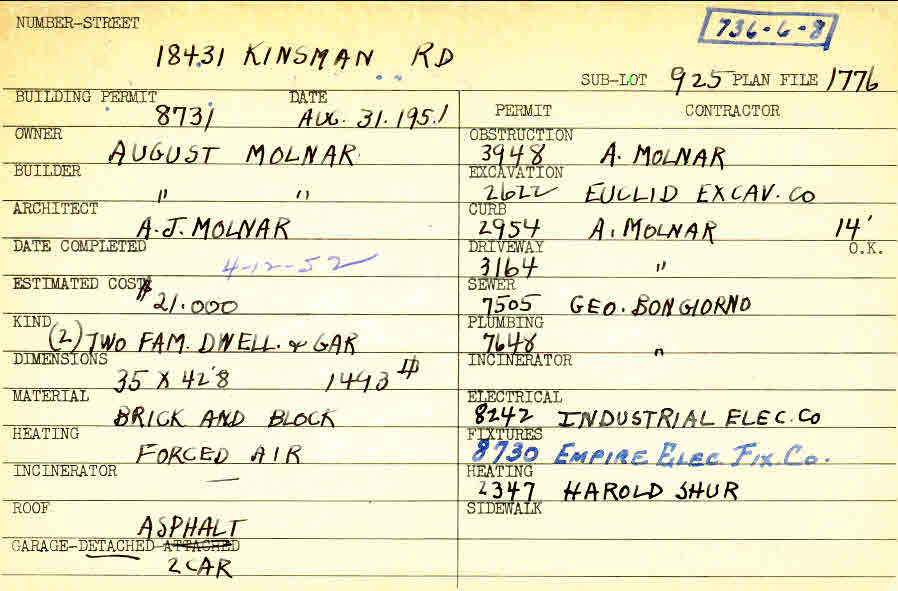 NUMBER-STREET
736-6-8
18431 KINSMAN RD
SUB-LOT 925 PLAN FILE 1776
BUILDING PERMIT DATE
8731 AUG. 31. 1951
OWNER
AUGUST MOLNAR
BUILDER
" "
ARCHITECT
A.J. MOLNAR
DATE COMPLETED
4-12-52
ESTIMATED COST
$21.000
KIND
(2) TWO FAM. DWELL. & GAR
DIMENSIONS
35 X 42'8 1493
MATERIAL
BRICK AND BLOCK
HEATING
FORCED AIR
INCINERATOR
—
ROOF
ASPHALT
GARAGE-DETACHED ATTACHED
2 CAR
PERMIT CONTRACTOR
OBSTRUCTION
3948 A. MOLNAR
EXCAVATION
2622 EUCLID EXCAV. CO
CURB
2954 A. MOLNAR 14'
DRIVEWAY O.K.
3164 "
SEWER
7505 GEO. BONGIORNO
PLUMBING
7648 "
INCINERATOR
ELECTRICAL
8242 INDUSTRIAL ELEC. CO
FIXTURES
8730 EMPIRE ELEC. FIX. CO.
HEATING
2347 HAROLD SHUR
SIDEWALK